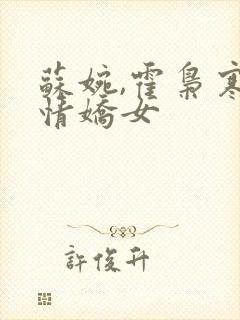 蘇婉,霍梟寒
情嬌女
許俊升